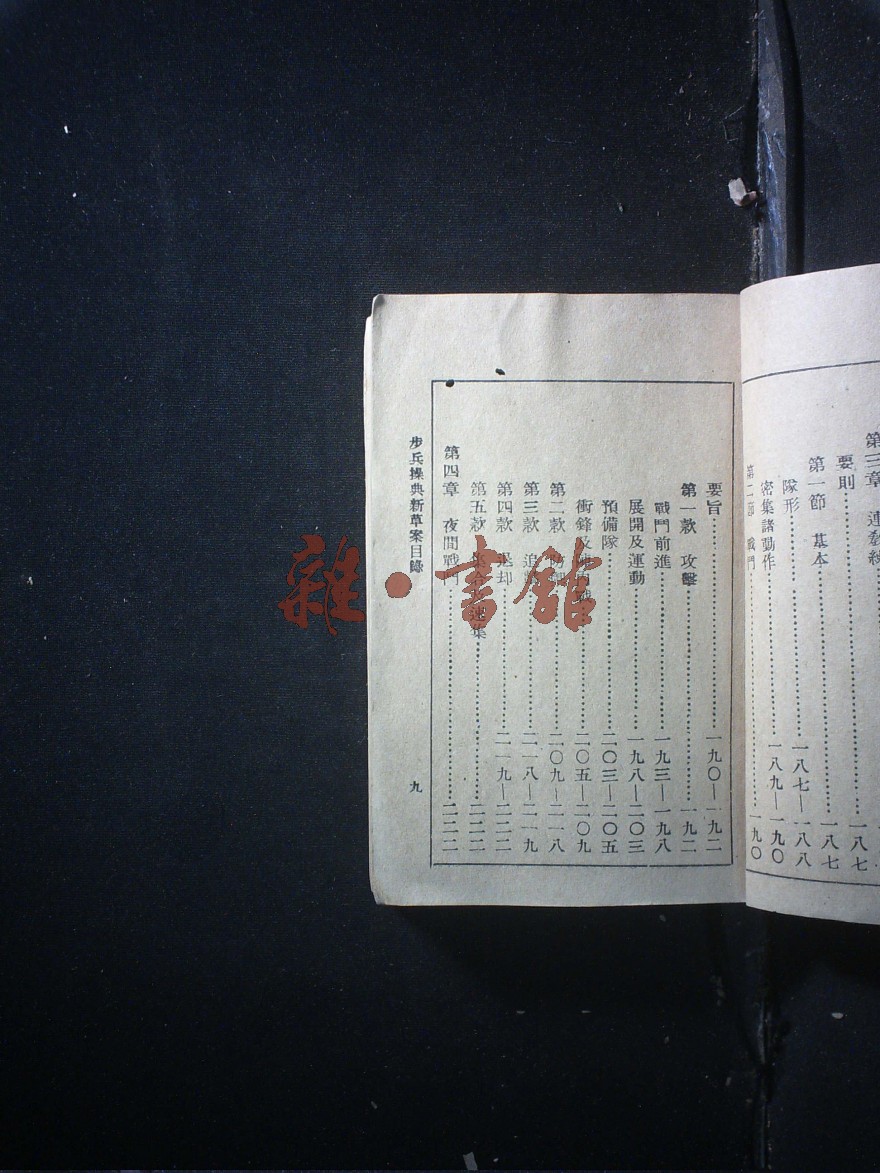 第三章
要則……一八七
第一節　基本……一八七
隊形……一八七—一八八
密集諸動作……一八九—一九〇
第二節　戰鬥……一九〇
要旨……一九〇—一九二
第一款　攻擊……一九二
戰鬥前進……一九三—一九八
展開及運動……一九八—二〇三
預備隊……二〇三—二〇五
衝鋒及……二〇五—二〇九
第二款……二〇九—二一八
第三款　追……二一八—二一九
第四款　退却……二一九—二二二
第五款　集合　速集……二二二
第四章　夜間戰鬥……二二二
步兵操典新草案目錄
九
雜·書館